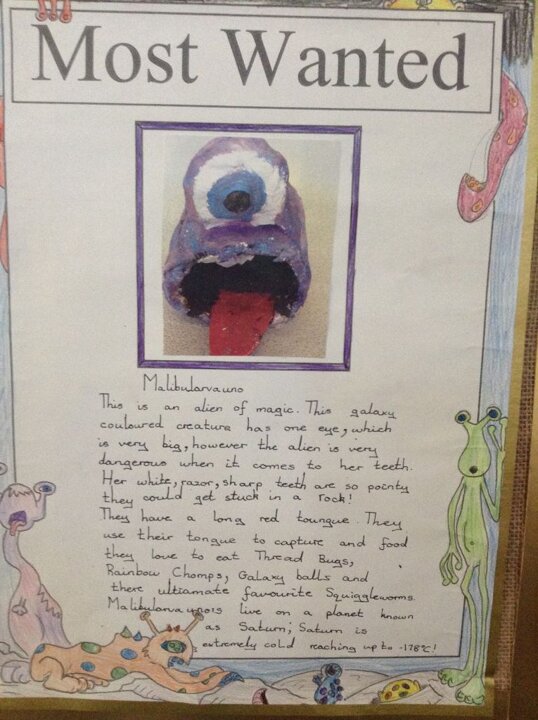 Most Wanted
Malibularvauno
This is an alien of magic. This galaxy
couloured creature has one eye, which
is very big, however the alien is very
dangerous when it comes to her teeth.
Her white, razor, sharp teeth are so pointy
they could get stuck in a rock!
They have a long red toungue. They
use their tongue to capture and food
they love to eat Thread Bugs,
Rainbow Chomps, Galaxy balls and
there ultiamate favourite Squiggleworms.
live on a planet known
as Saturn; Saturn is
extremely cold reaching up to -178°C!